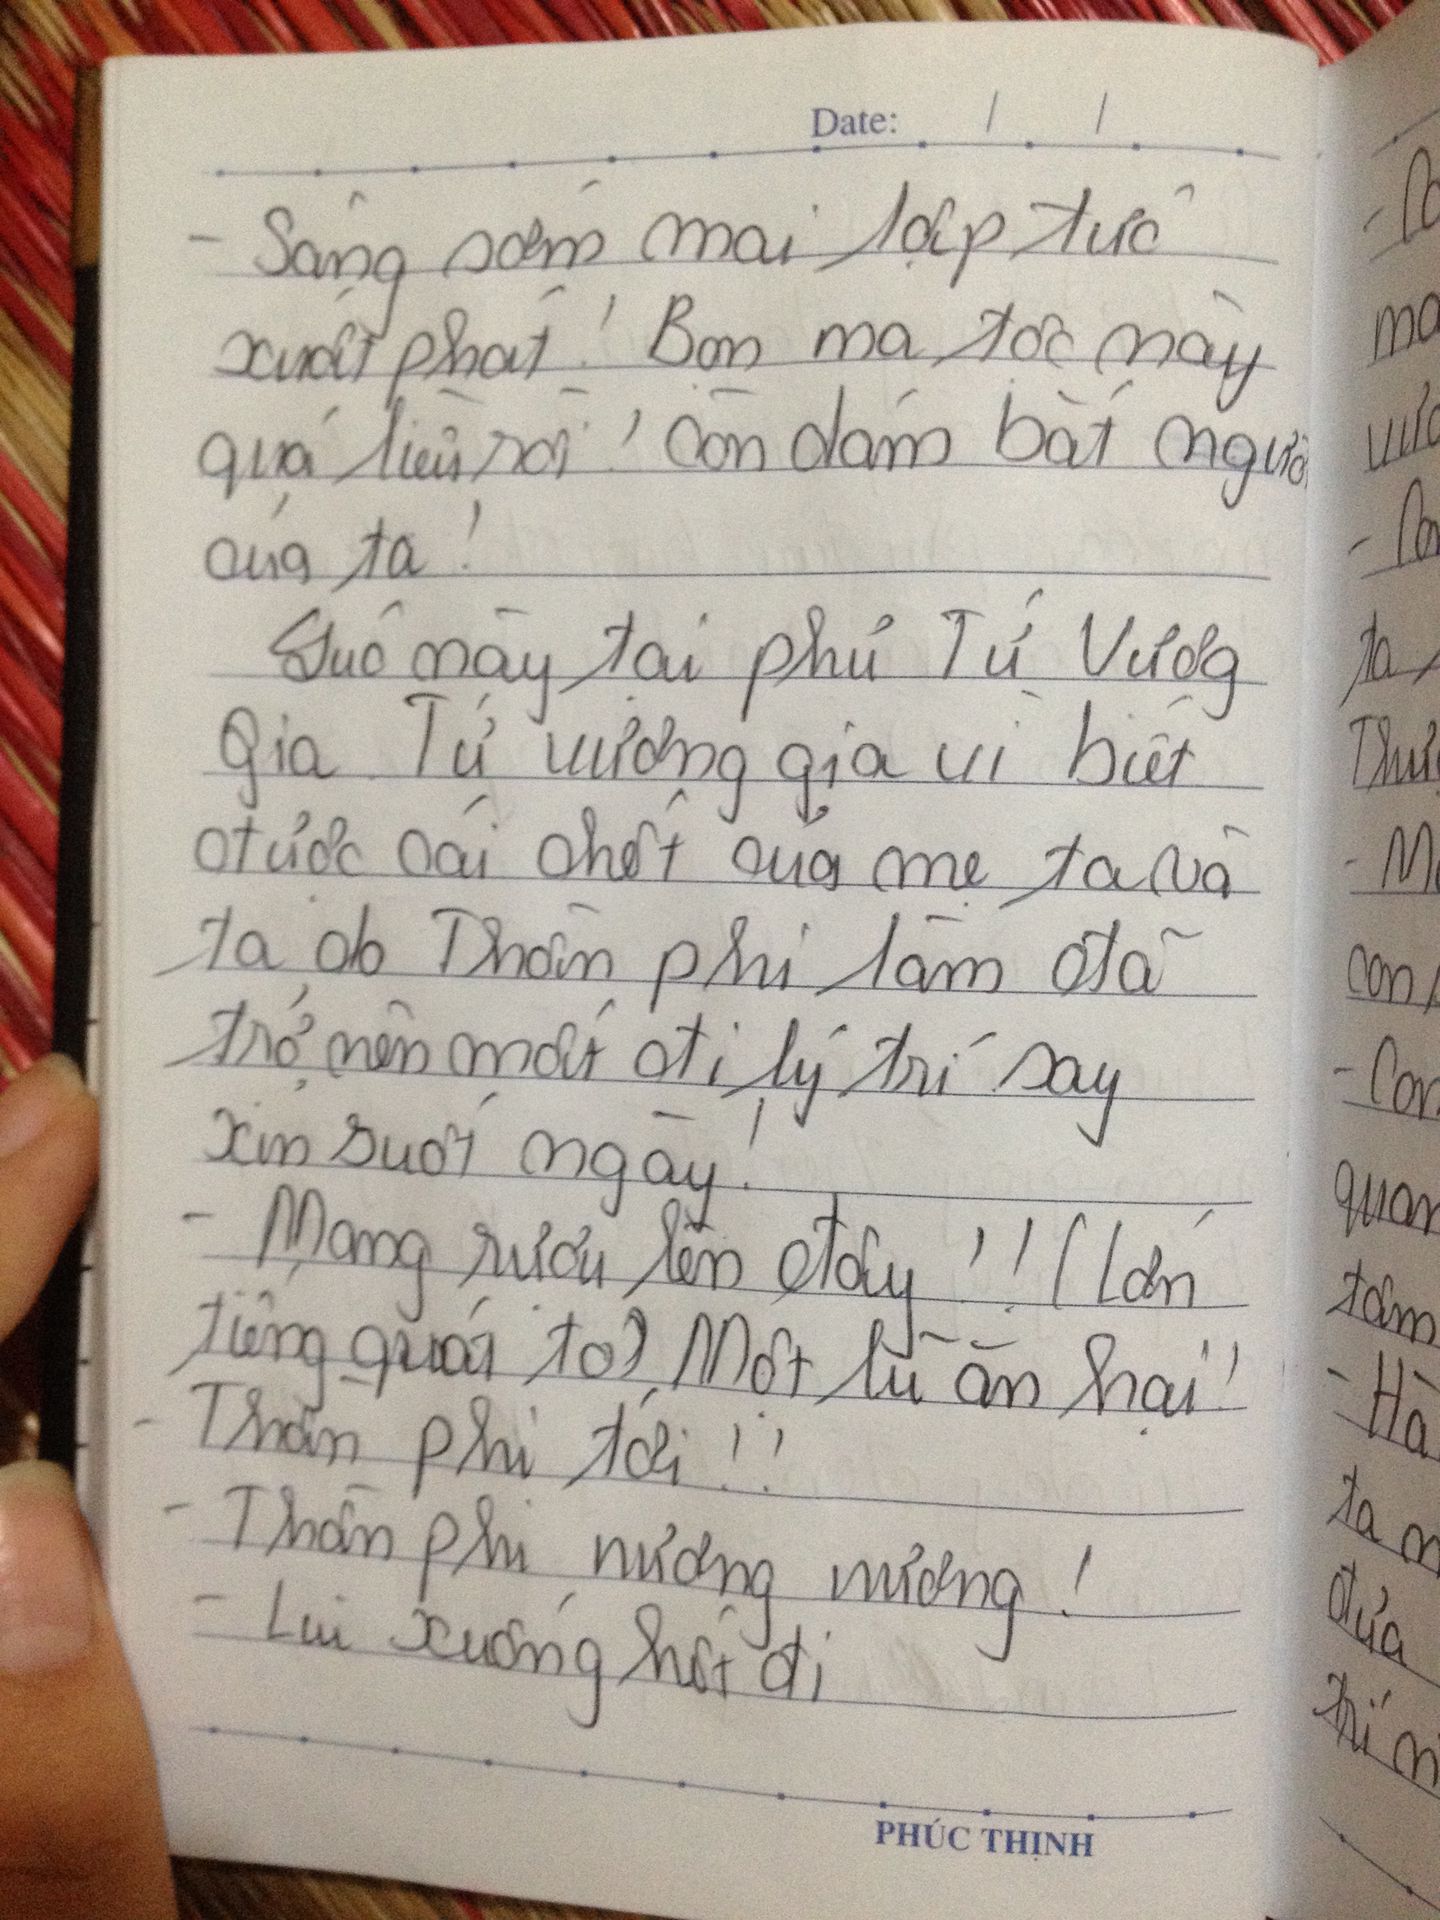 Date: / /
- Sáng sớm mai lập tức
xuất phát! Bọn ma tộc này
quá liều rồi! Còn dám bắt người
của ta!
Lúc này tại phủ Tứ Vương
gia Tứ vương gia vì biết
được cái chết của mẹ ta và
ta do Thần phi làm đã
trở nên mất đi lý trí say
xỉn suốt ngày!
- Mang rượu lên đây!!! (Lớn
tiếng quát to) Một lũ ăn hại!!
- Thần phi tới!!
- Thần phi nương nương!
- Lui xuống hết đi
PHÚC THỊNH